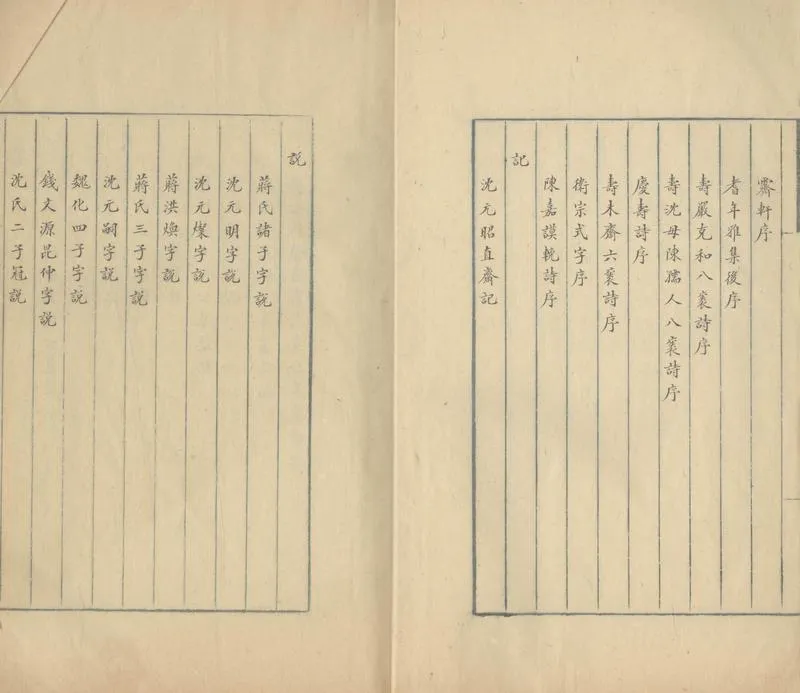 霽軒序
耆年雅集後序
壽嚴克和八袠詩序
壽沈母陳孺人八袠詩序
慶壽詩序
壽木齋六袠詩序
衛宗式字序
陳嘉謨輓詩序
記
沈元昭直齋記
說
蔣氏諸子字說
沈元明字說
沈元燦字說
蔣洪煥字說
蔣氏三子字說
沈元嗣字說
魏化四子字說
錢文源昆仲字說
沈氏二子冠說